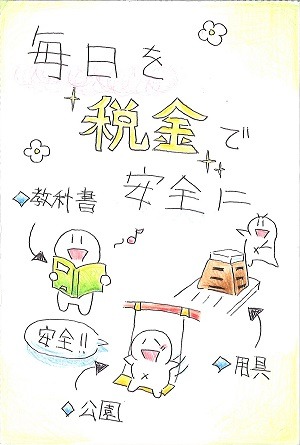 毎日を
税金で
安全に
教科書
安全!!
用具
公園